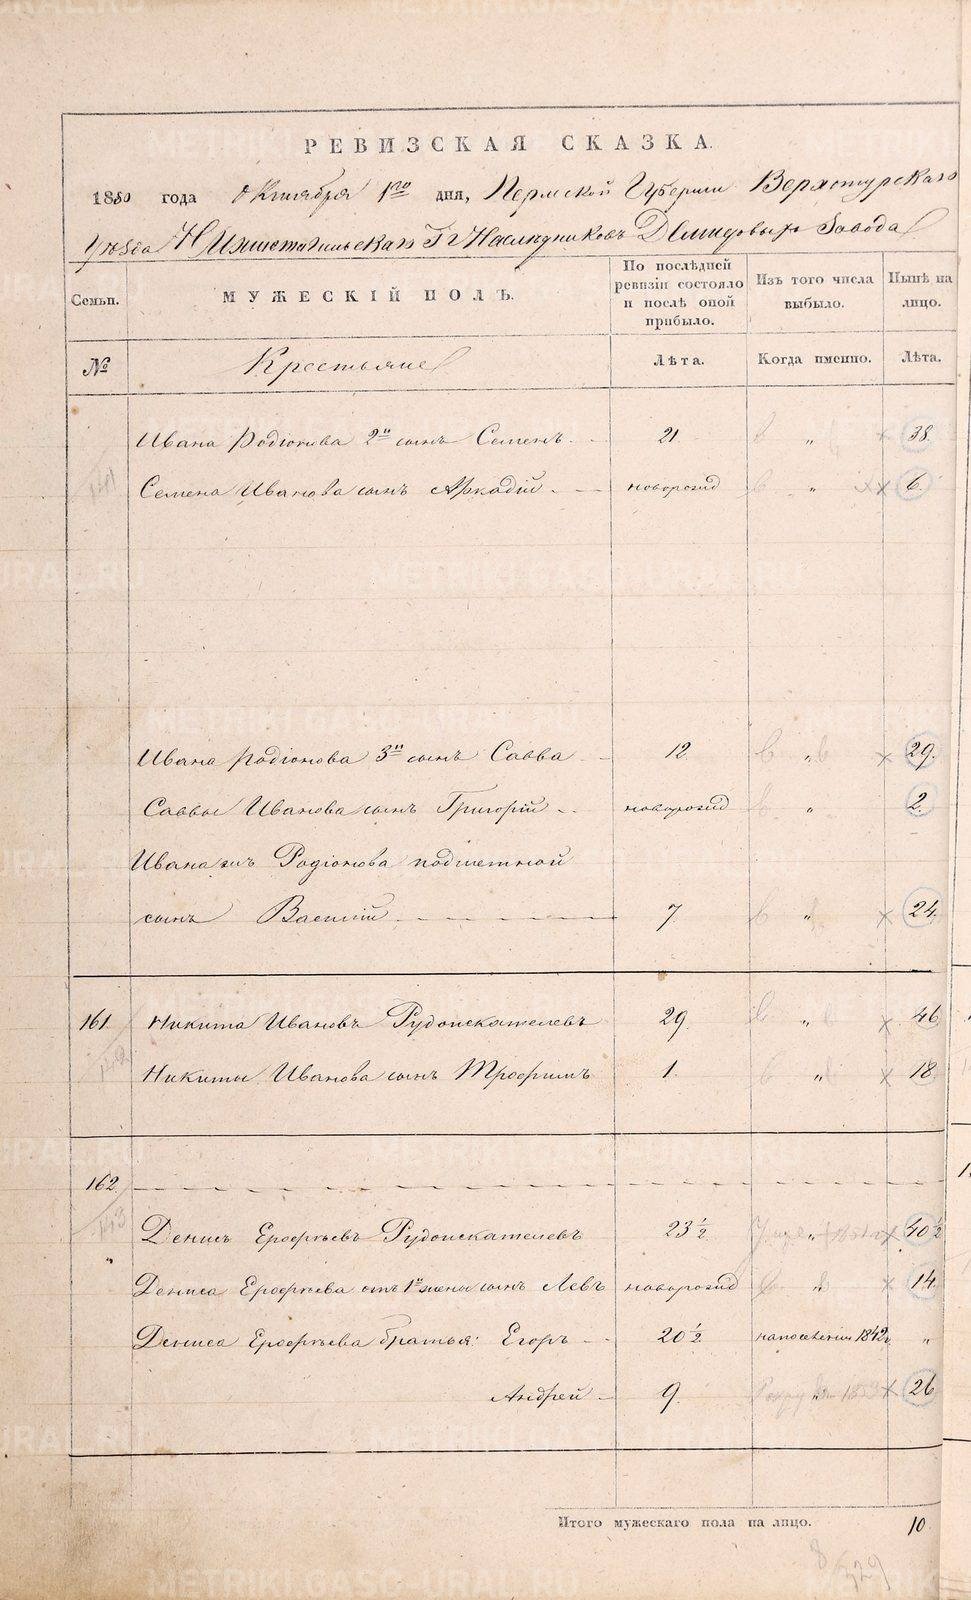 РЕВИЗСКАЯ СКАЗКА.
1850 года Октября 1го дня, Пермской Губернии Верхотурскаго
Уѣзда Нижнетагильскаго Гг Наслѣдниковъ Демидовыхъ Завода
Семьи. МУЖЕСКІЙ ПОЛЪ. По послѣдней ревизіи состояло и послѣ оной прибыло. Изъ того числа выбыло. Нынѣ на лицо.
№ Крестьяне Лѣта. Когда именно. Лѣта.
Ивана Родіонова 2й сынъ Семенъ 21 " 38.
Семена Иванова сынъ Аркадій новорожд " 6.
Ивана Родіонова 3й сынъ Савва 12. " 29.
Саввы Иванова сынъ Григорій новорожд " 2.
Ивана жъ Родіонова
сынъ Василій 7 " 24.
161. Никита Ивановъ Рудоискателевъ 29. " 46
Никиты Иванова сынъ Трофимъ 1. " 18.
162.
" Денисъ Ерофѣевъ Рудоискателевъ 23 1/2 " 40 1/2
Дениса Ерофѣева отъ 1й жены сынъ Левъ новорожд " 14.
Дениса Ерофѣева братья: Егоръ 20 1/2 на поселеніи 1842г "
Андрей 9. " 26
Итого мужескаго пола на лицо. 10
METRIKI.GASO-URAL.RU